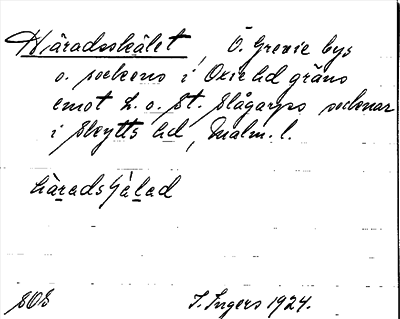 Häradsskälet, Ö. Grevie bys
o. sockens i Oxie hd gräns
emot L. o. St. Slågarps socknar
i Skytts hd, Malm. l.
häradsɧälad
SOS I. Ingers 1924.